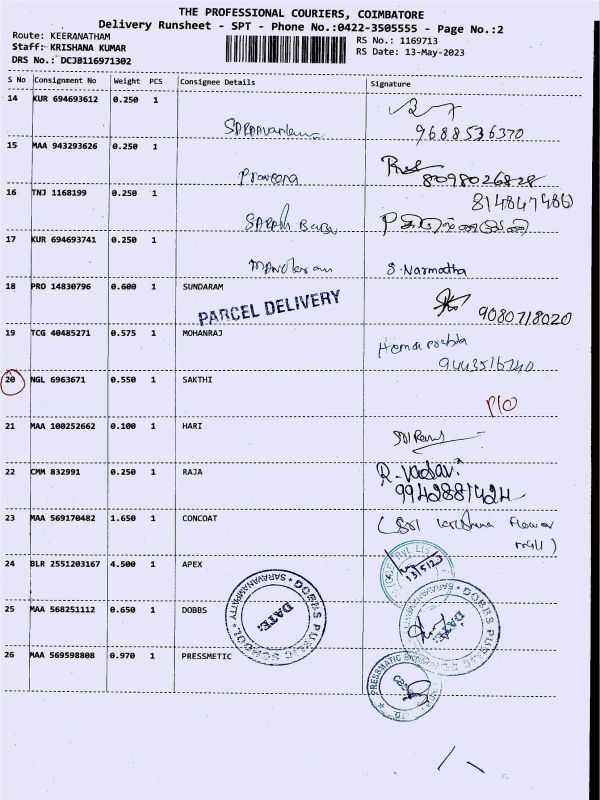 THE PROFESSIONAL COURIERS, COIMBATORE
Delivery Runsheet - SPT - Phone No.:0422-3505555 - Page No.:2
Route: KEERANATHAM
Staff: KRISHANA KUMAR
DRS No.: DCJB116971302
RS No.: 1169713
RS Date: 13-May-2023
S No Consignment No Weight PCS Consignee Details Signature
14 KUR 694693612 0.250 1
9688536370
15 MAA 943293626 0.250 1
Praveena 8098026828
814847486
16 TNJ 1168199 0.250 1
SARATH BABU
17 KUR 694693741 0.250 1
S. Narmatha
18 PRO 14830796 0.600 1 SUNDARAM
PARCEL DELIVERY
9080718020
19 TCG 40485271 0.575 1 MOHANRAJ
Hema prabha
9443516740
20 NGL 6963671 0.550 1 SAKTHI
P/O
21 MAA 100252662 0.100 1 HARI
22 CMM 832991 0.250 1 RAJA
R. Yadavi
9942881424
23 MAA 569170482 1.650 1 CONCOAT
(Sri krishna flower
mill)
24 BLR 2551203167 4.500 1 APEX
13/5/23
25 MAA 568251112 0.650 1 DOBBS
DOBBS PUBLIC SCHOOL * SARAVANAMPATTY *
DATE:
DOBBS PUBLIC SCHOOL * SARAVANAMPATTY *
DATE:
26 MAA 569598808 0.970 1 PRESSMETIC
PRESSMATIC